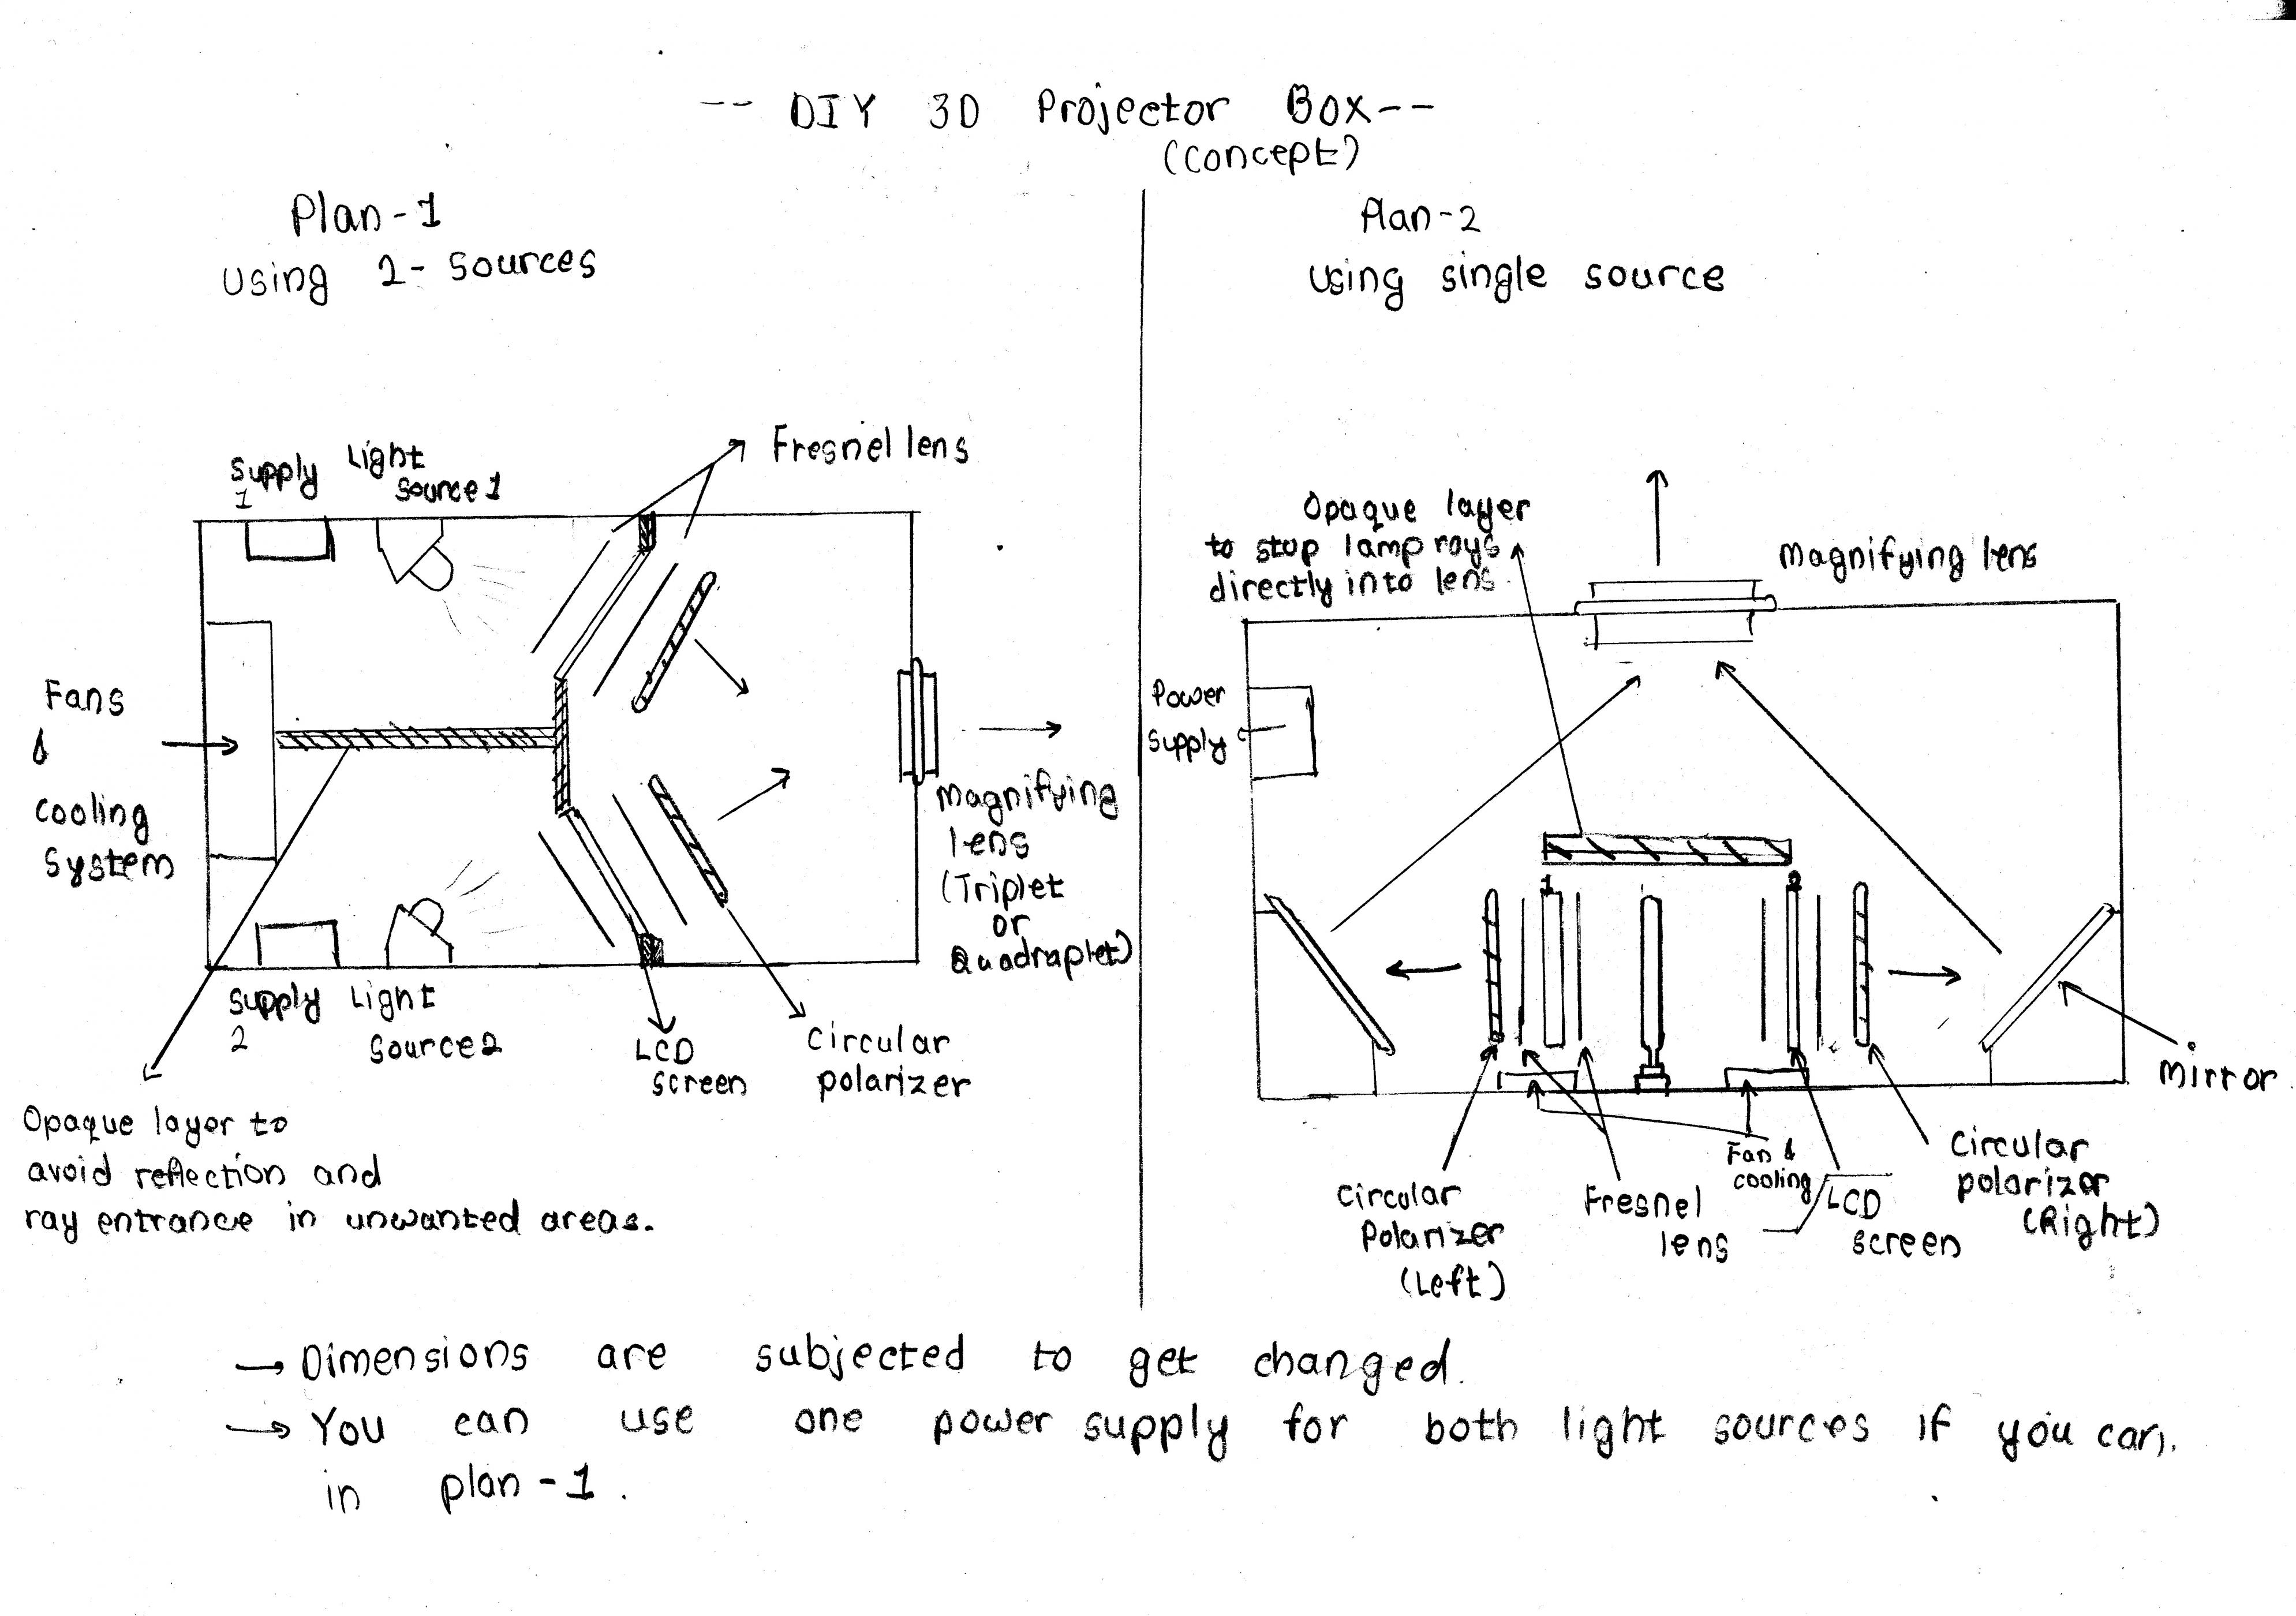 -- DIY 3D Projector Box--
(concept)
Plan-1
Using 2- Sources
Supply
1
Light
Source 1
Fresnel lens
Fans
&
cooling
System
Magnifying
lens
(Triplet
or
Quadraplet)
Supply
2
Light
Source 2
LCD
screen
Circular
polarizer
Opaque layer to
avoid reflection and
ray entrance in unwanted areas.
Plan-2
Using single source
Opaque layer
to stop lamp rays
directly into lens.
Magnifying lens
Power
Supply
1
2
Mirror
Circular
Polarizer
(Left)
Fresnel
lens
Fan &
cooling
LCD
screen
Circular
polarizer
(Right)
→ Dimensions are subjected to get changed.
→ You can use one power supply for both light sources if you can.
in plan -1.